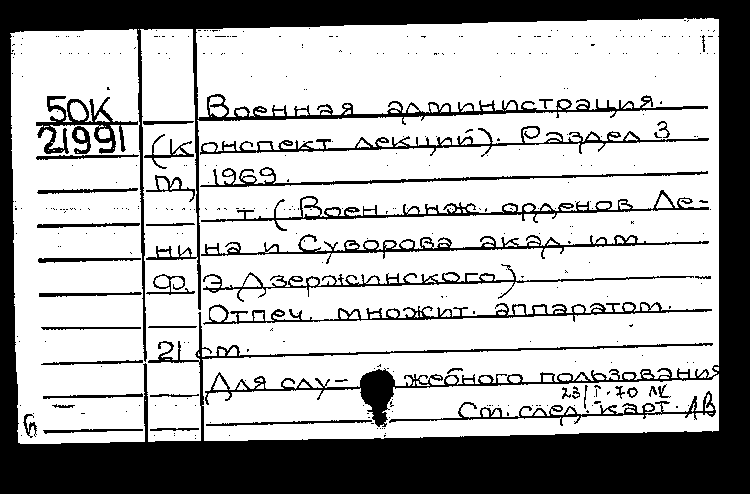 1
50К
21991
Военная администрация.
(Конспект лекций). Раздел 3
М, 1969.
т. (Воен. инж. орденов Ле-
нина и Суворова акад. им.
Ф. Э. Дзержинского).
Отпеч. множит. аппаратом.
21 см.
Для слу- жебного пользования
23/I-70
См. след. карт. АВ
б